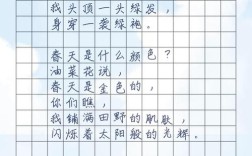 我头顶一头绿发，
身穿一袭绿袍。
春天是什么颜色？
油菜花说，
春天是金色的，
你们瞧，
我铺满田野的肌肤，
闪烁着太阳般的光辉。